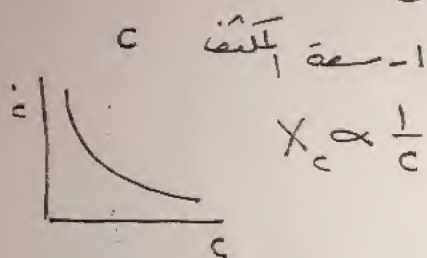 ١- سعة المكثف C
X_c ∝ 1/C
C